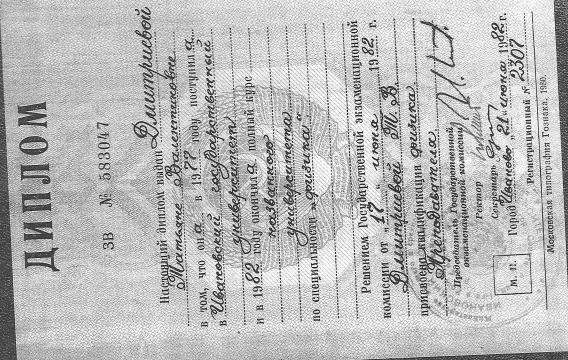 ДИПЛОМ
ЗВ № 583047
Настоящий диплом выдан Дмитриевой
Татьяне Валентиновне
в том, что она в 1977 году поступила
в Ивановский государственный
университет
и в 1982 году окончила полный курс
названного
университета
по специальности „физика“
Решением Государственной экзаменационной
комиссии от „17“ июня 1982 г.
Дмитриевой Т В
присвоена квалификация физика
Преподавателя
Председатель Государственной
экзаменационной комиссии
Ректор
Секретарь
М. П.
Город Иваново „21“ июня 1982 г.
Регистрационный № 2307
Московская типография Гознака, 1980.